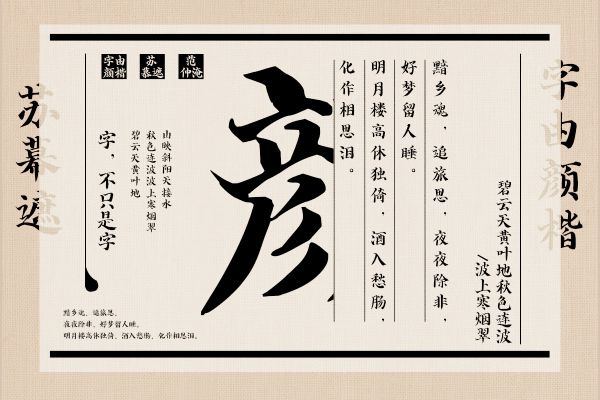 字由颜楷
碧云天黄叶地秋色连波
\波上寒烟翠
黯乡魂，追旅思，夜夜除非，
好梦留人睡。
明月楼高休独倚，酒入愁肠，
化作相思泪。
彦
范仲淹
苏幕遮
字由颜楷
由映斜阳天接水
秋色连波波上寒烟翠
碧云天黄叶地
字，不只是字
黯乡魂，追旅思，
夜夜除非，好梦留人睡，
明月楼高休独倚，酒入愁肠，化作相思泪。
苏幕遮